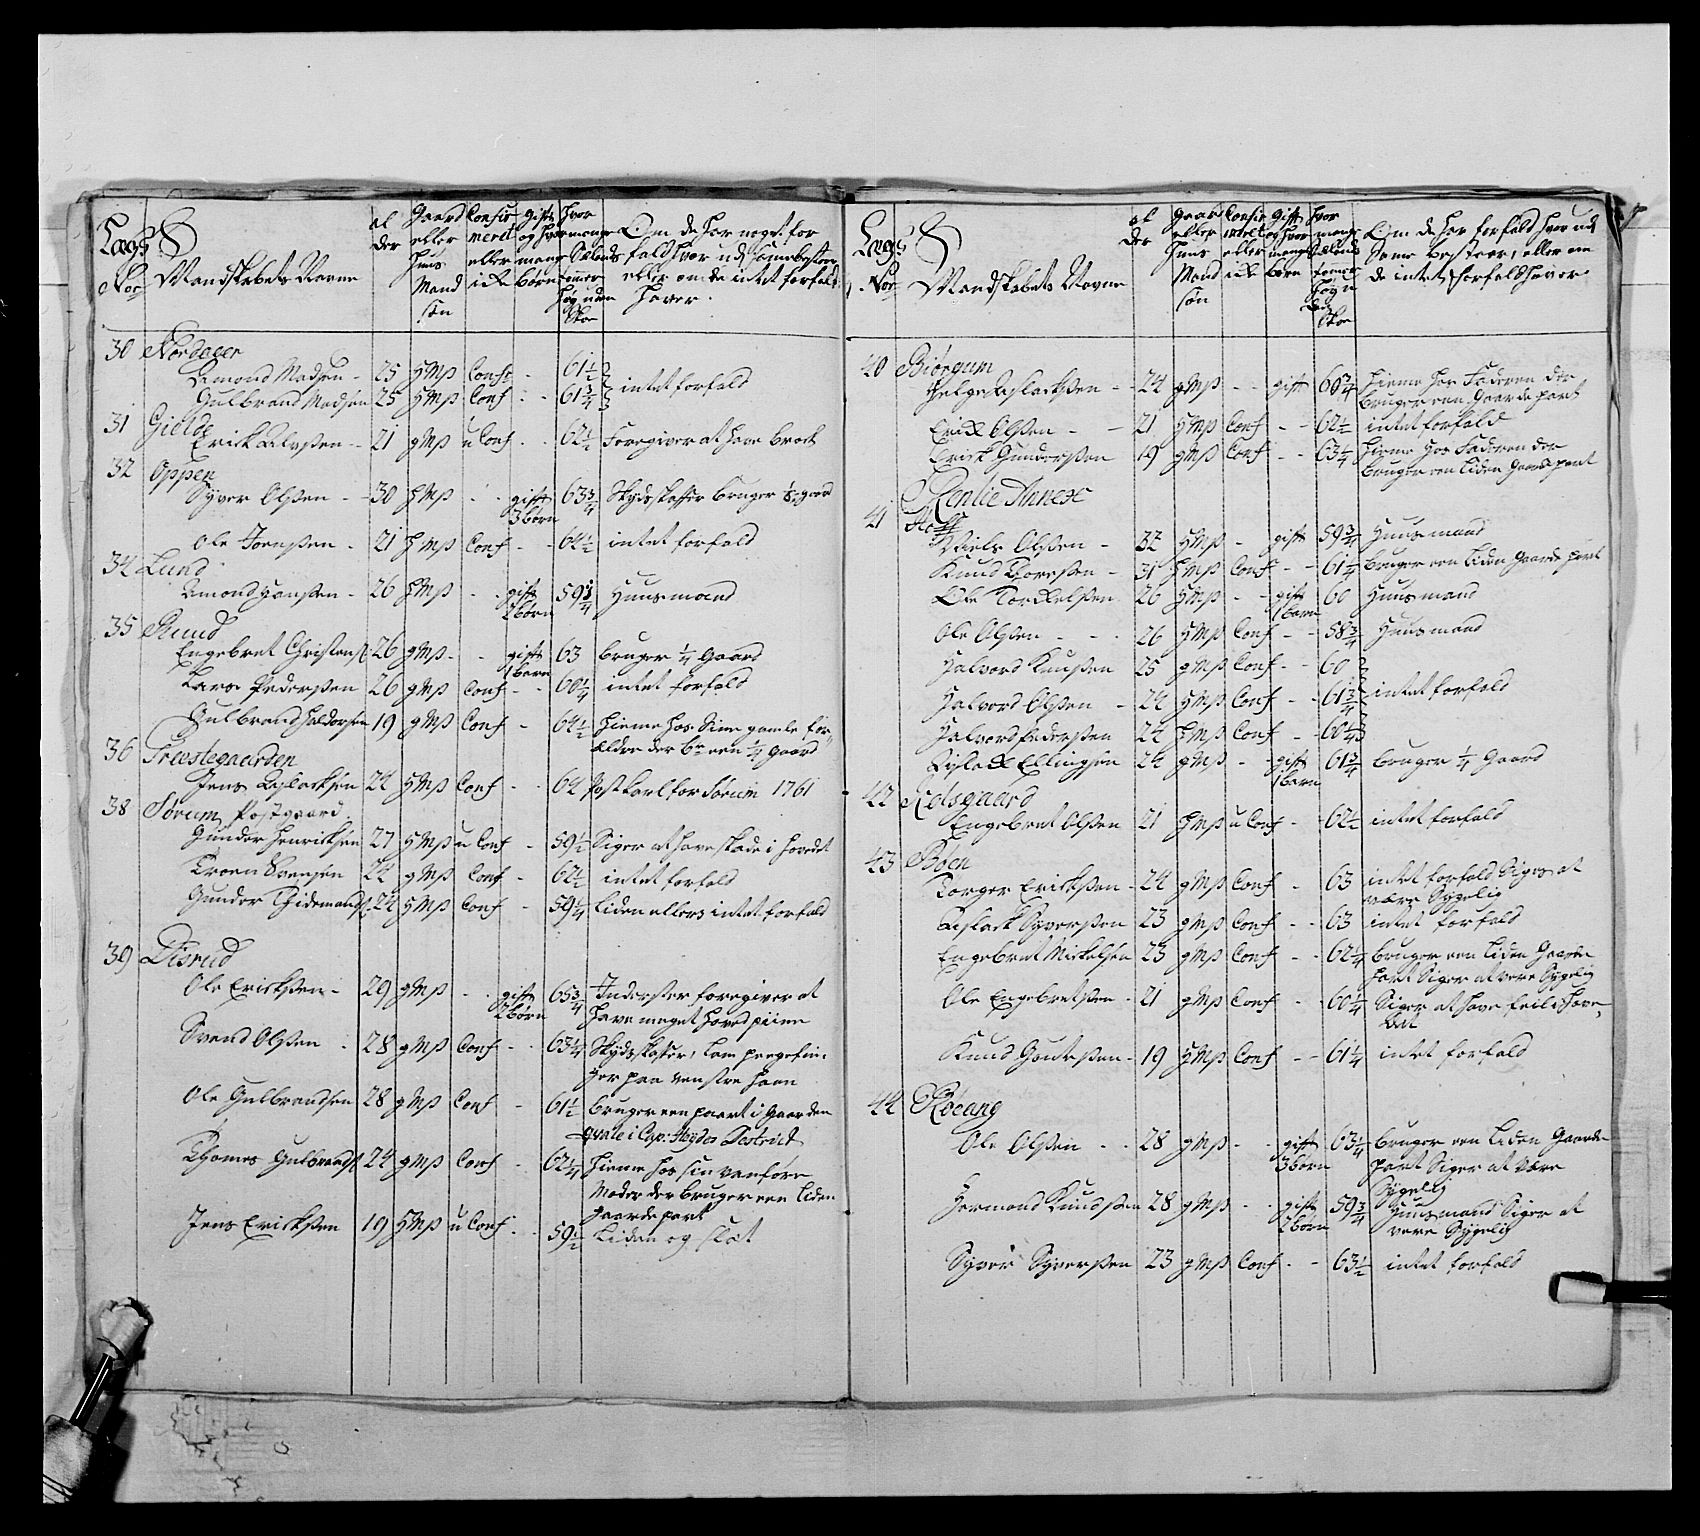 Lægs No:
Mandskabets Navne
al der
Gaard eller Huus Mand søn
Confir meret eller ick
gift og hvor mange børn
hvor mange Siælands tommer høy uden Skoe
Om de har noget for fald hvor udj samme bestaar eller om de intet forfald haver.
30 Nordager
Amond Madsen - 25 HMS Conf: - 61½ intet forfald
Gulbrand Madsen 25 HMS Conf - 61¾
31 Gielde
Erick Alvsen - 21 gMS u Conf - - 62½ Foregiver at have brock
32 Oppen
Syver Olsen - 30 HMS - - gift 3 børn 63¾ Skydsskaffer bruger gaard
Ole Joensen - 21 HMS Conf - - 64½ intet forfald
34 Lund
Amond Hansen - 26 HMS - - gift 2 børn 59¾ Huusmand
35 Rund
Engebret Christens 26 gMS - - gift 1 barn 63 bruger ¼ Gaard
Lars Pedersen 26 gMS Conf - - 60¼ intet forfald
Gulbrand Haldorsen 19 gMS Conf - 64½ hieme hos Sine gamle for=
ældre der br een ¼ gaard
36 Præstegaarden
Jens Aslacksen 24 HMS Conf - - 64 Postkarl for Sørum 1761
38 Sørum Postgaard
Gunder Henricksen 27 HMS u Conf - 59½ Siger at have skade i hovedet
Troen Svensen 24 gMS Conf - 62½ intet forfald
Gunder Thidemands: 24 HMS Conf - 59¼ Liden ellers intet forfald
39 Disrud
Ole Ericksen - 29 gMS - - gift 2 børn 65¾ Inderster foregiver at
have meget hoved piine
Svend Olsen - 28 gMS Conf - - 63¼ Skydsskaffer, lam peegefin=
ger paa venstre haan
Ole Gulbrandsen 28 gMS Conf - 61½ bruger een paart i Gaarden
qvale i Cap: Heyder District
Thomes Gulbrands 24 gMS Conf - 62¼ hieme hos sin vanføre
Moder der bruger een liden
gaardepart
Jens Ericksen 19 HMS u Conf - - 59½ Liden og slet
Lægs No:
Mandskabets Navne
al der
gaar eller Huus Mand søn
Confir meret eller ick
Gift og hvor mange børn
hvor mange Siællands tomer høy u den Skoe
Om de har forfald hvor udj
Same bestaar, eller om
de intet forfald haver
40 Biørgum
Helge Aslacksen - - 24 gMS - - gift 60¾ hieme hos Faderen der
bruger een Gaardepart
Erick Olsen - - 21 HMS Conf - - 62½ intet forfald
Erick Gundersen 19 gMS Conf - - 63¼ hieme hos Faderen der
bruger een liden Gaardepart
Reenlie Annex
41 Hoff
Niels Olsen - 32 HMS - gift 59¾ Huusmand
Knud Thoresen - 31 HMS Conf - - 61¼ bruger een liden Gaardepart
Ole Torckelsen 26 HMS - - gift 1 barn 60 Huusmand
Ole Olsen - - - 26 HMS Conf - - 58¾ Huusmand
Halvord Knudsen 25 gMS Conf - - 60
Halvord Olsen - 24 HMS Conf - - 61¾ intet forfald
Halvord Pedersen 24 HMS Conf - 60¼
Aslack Ellingsen 24 gMS - - gift 1 barn 61¾ bruger ¼ Gaard
42 Kolsgaard
Engebret Olsen 21 HMS u Conf - 62½ intet forfald
43 Böen
Torger Ericksen - 24 gMS Conf - 63 intet forfald Siger at
være Sygelig
Aslack Syversen 23 gMS Conf - - 63 intet forfald
Engebret Mickelsen 23 gMS Conf - - 62¼ bruger een liden Gaarde
part Siger at være Sygelig
Ole Engebretsen - 21 gMS Conf - - 60¼ Siger at have feil i hove,
det
Knud Goutesen - 19 HMS Conf - - 61¼ intet forfald
44 Röeang
Ole Olsen - - 28 gMS - - gift 3 børn 63¼ bruger een liden Gaarde
part Siger at være
Sygelig
Hermand Knudsen 28 gMS - - gift 2 børn 59¾ Huusmand Siger at
være Sygelig
Syver Syversen 23 gMS Conf - - 63½ intet forfald